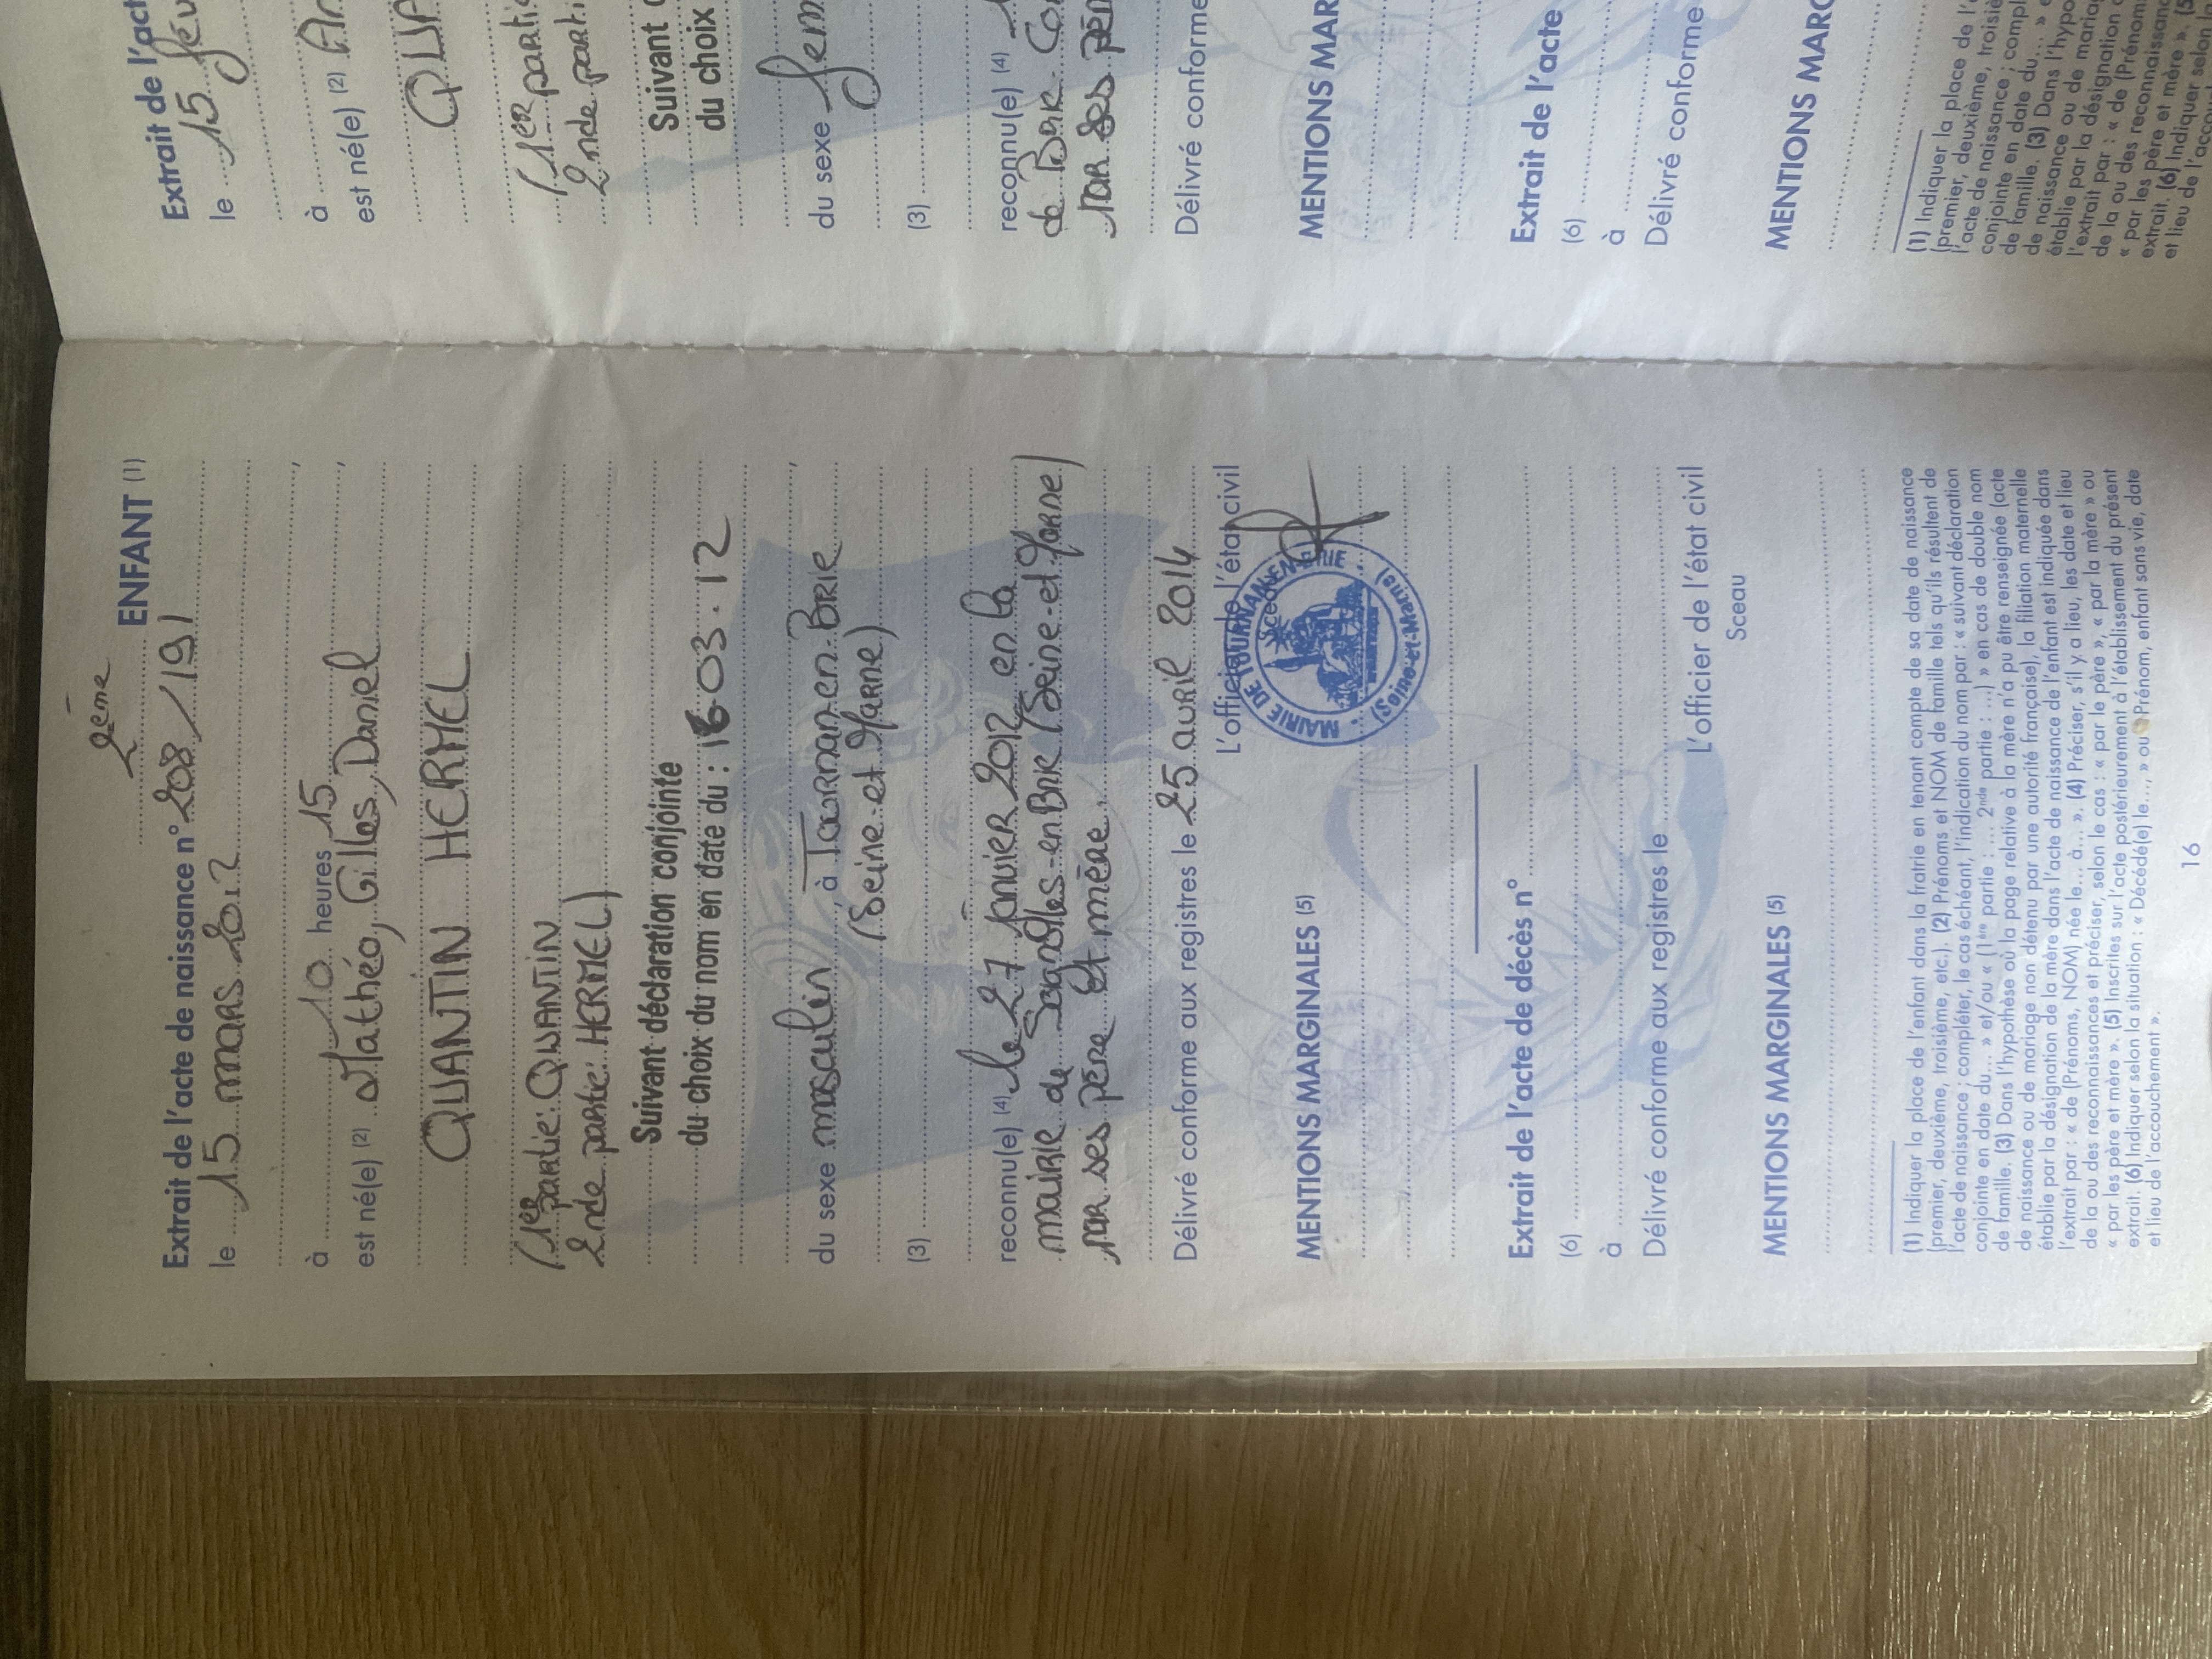 2ème
ENFANT (1)
Extrait de l'acte de naissance n° 208/191
le 15 mars 2012
à 10 heures 15,
est né(e) (2) Mathéo, Gilles, Daniel,
QUANTIN HERMEL
(1er partie: QUANTIN
2nde partie: HERMEL)
Suivant déclaration conjointe
du choix du nom en date du : 16.03.12
du sexe masculin, à Tournan en Brie,
(Seine et Marne)
(3)
reconnu(e) (4) le 27 janvier 2012 en la
mairie de Soignolles-en-Brie (Seine-et-Marne)
par ses père et mère.
Délivré conforme aux registres le 25 avril 2014
L'officier de l'état civil
Sceau
MAIRIE DE TOURNAN-EN-BRIE
(Seine-et-Marne)
MENTIONS MARGINALES (5)
Extrait de l'acte de décès n°
(6)
à
Délivré conforme aux registres le
L'officier de l'état civil
Sceau
MENTIONS MARGINALES (5)
(1) Indiquer la place de l'enfant dans la fratrie en tenant compte de sa date de naissance
(premier, deuxième, troisième, etc.). (2) Prénoms et NOM de famille tels qu'ils résultent de
l'acte de naissance ; compléter, le cas échéant, l'indication du nom par : « suivant déclaration
conjointe en date du... » et/ou « (1ère partie : ..... 2nde partie : ...) » en cas de double nom
de famille. (3) Dans l'hypothèse où la page relative à la mère n'a pu être renseignée (acte
de naissance ou de mariage non détenu par une autorité française), la filiation maternelle
établie par la désignation de la mère dans l'acte de naissance de l'enfant est indiquée dans
l'extrait par : « de (Prénoms, NOM) née le... à... ». (4) Préciser, s'il y a lieu, les date et lieu
de la ou des reconnaissances et préciser, selon le cas : « par le père », « par la mère » ou
« par les père et mère ». (5) Inscrites sur l'acte postérieurement à l'établissement du présent
extrait. (6) Indiquer selon la situation : « Décédé(e) le..., » ou « Prénom, enfant sans vie, date
et lieu de l'accouchement ».
16
Extrait de l'act
le 15 fév
à
est né(e) (2)
QUA
(1er parti
2nde parti
Suivant
du choix
du sexe fém
(3)
reconnu(e) (4)
de
par ses pèr
Délivré conforme
MENTIONS MAR
Extrait de l'acte
(6)
à
Délivré conforme
MENTIONS MARG
(1) Indiquer la place de l'
(premier, deuxième, troisiè
l'acte de naissance ; compl
conjointe en date du... » e
de famille. (3) Dans l'hypo
de naissance ou de mariag
établie par la désignation
l'extrait par : « de (Prénom
de la ou des reconnaissanc
« par les père et mère ». (5
extrait. (6) Indiquer selon
et lieu de l'accou